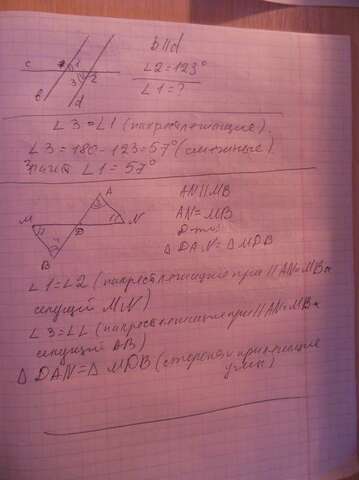 b||d
c
1
∠2=123°
3 2
∠1=?
b
d
∠3=∠1 (накрестлежащие).
∠3=180-123=57° (смежные).
значит ∠1=57°
A
AN||MB
M
N
AN=MB
D
Д-ть:
△DAN=△MDB
B
∠1=∠2 (накрест лежащие при || AN и MB и
секущей MN)
∠3=∠4 (накрест лежащие при || AN и MB и
секущей AB)
△DAN=△MDB (сторона и прилежащие
углы)